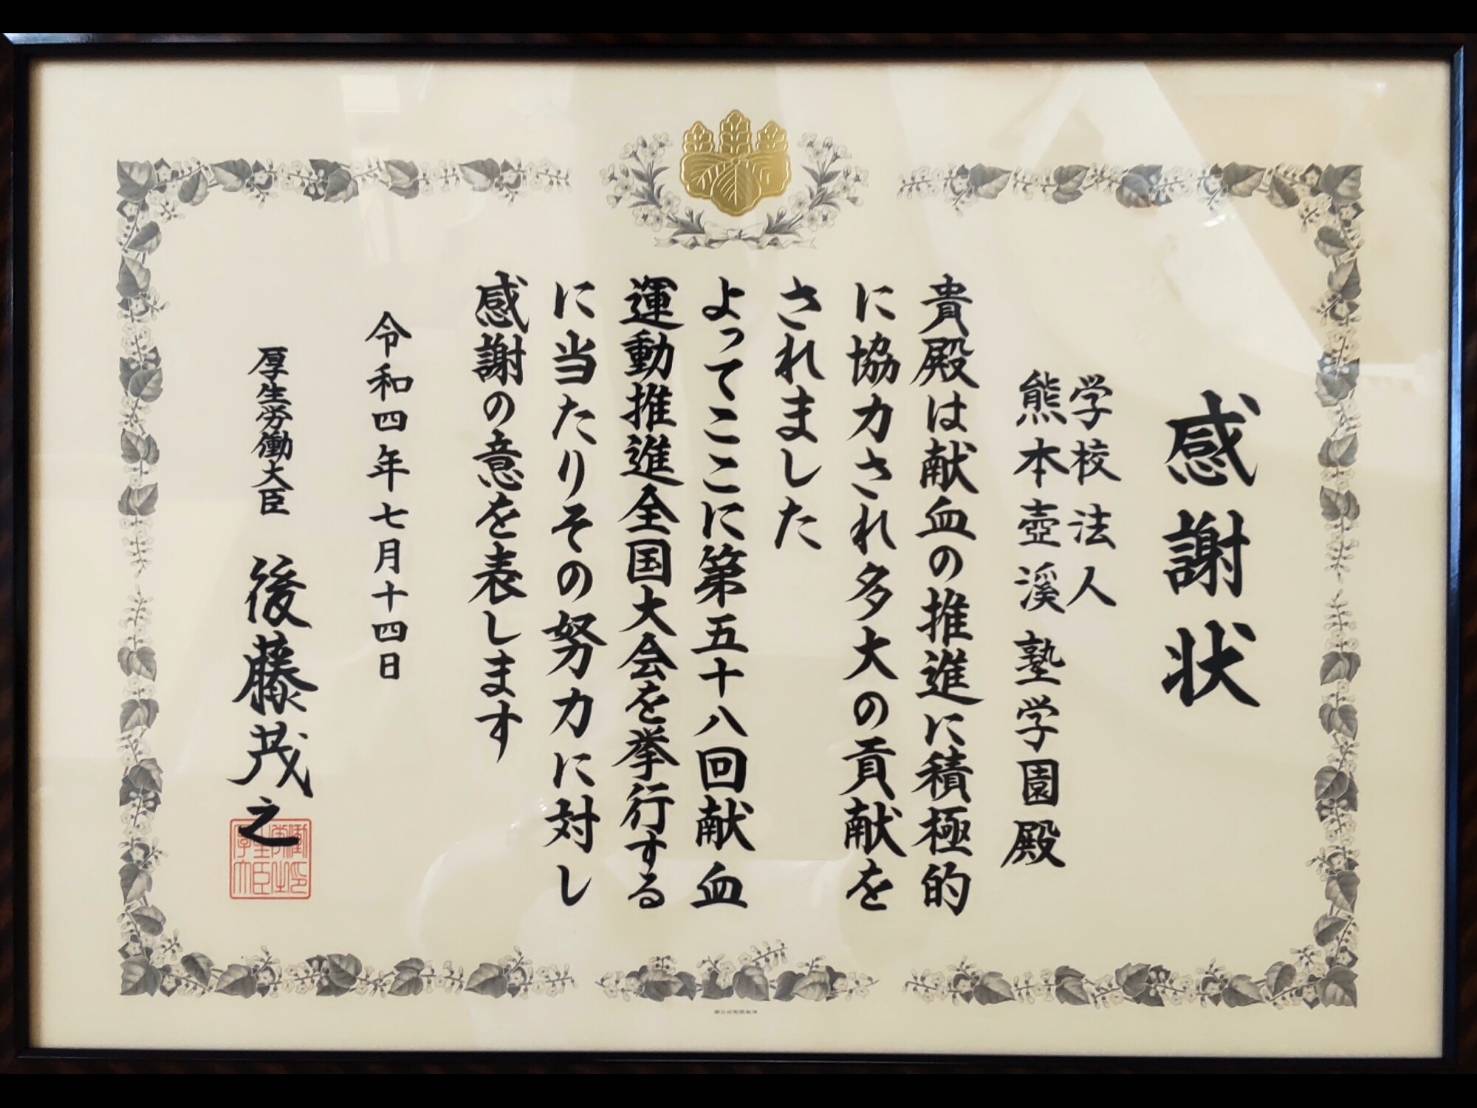 感謝状
学校法人
熊本壺溪塾学園殿
貴殿は献血の推進に積極的
に協力され多大の貢献を
されました
よってここに第五十八回献血
運動推進全国大会を挙行する
に当たりその努力に対し
感謝の意を表します
令和四年七月十四日
厚生労働大臣 後藤茂之